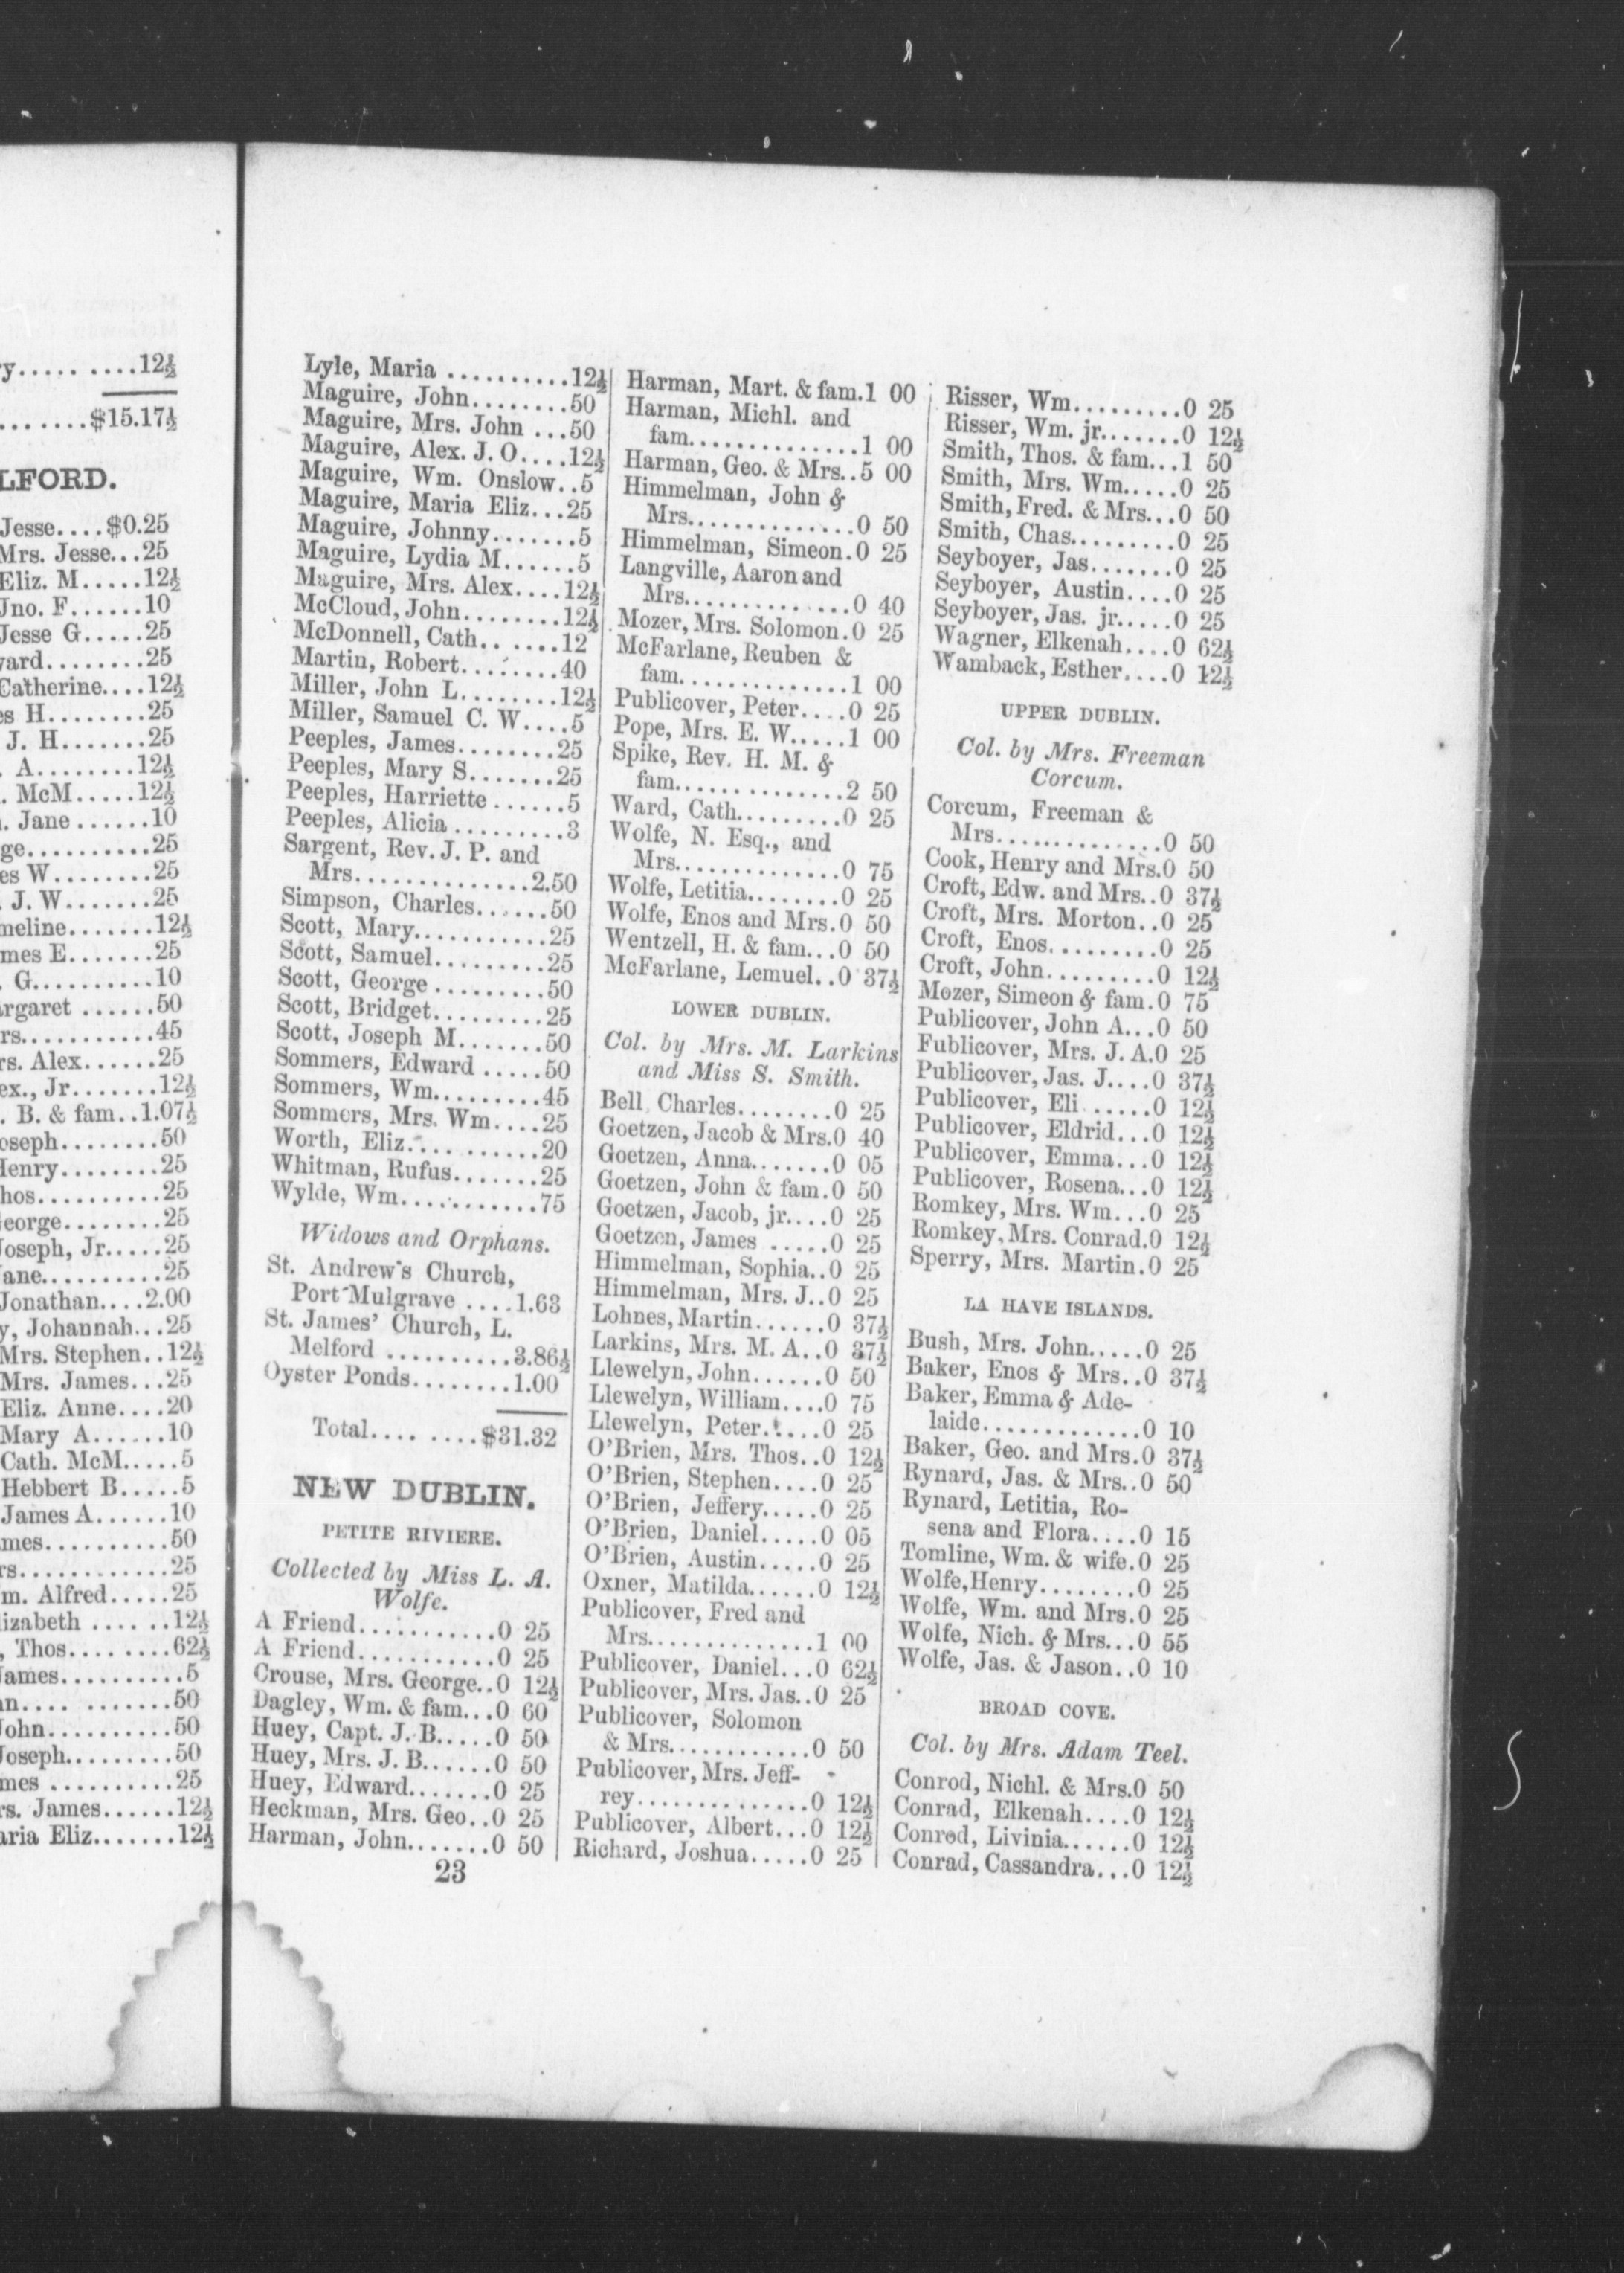 y..... ....12½
.......$15.17½
LFORD.
Jesse....$0.25
Mrs. Jesse...25
Eliz. M.....12½
Jno. F......10
Jesse G.....25
ard........25
Catherine....12½
es H........25
J. H.......25
A........12½
McM.....12½
Jane ......10
ge..........25
es W........25
J. W.......25
meline.......12½
mes E.......25
G..........10
argaret ......50
rs...........45
rs. Alex......25
ex., Jr.......12½
B. & fam..1.07½
oseph........50
Henry........25
hos..........25
eorge........25
Joseph, Jr.....25
ane..........25
Jonathan....2.00
y, Johannah...25
Mrs. Stephen..12½
Mrs. James...25
Eliz. Anne....20
Mary A......10
Cath. McM.....5
Hebbert B.....5
James A......10
mes..........50
rs............25
m. Alfred.....25
lizabeth .... ..12½
, Thos........62½
James..........5
n.... .......50
John..........50
Joseph.........50
mes ..........25
rs. James......12½
aria Eliz.......12½
Lyle, Maria ..........12½
Maguire, John........50
Maguire, Mrs. John ...50
Maguire, Alex. J. O....12½
Maguire, Wm. Onslow..5
Maguire, Maria Eliz...25
Maguire, Johnny.......5
Maguire, Lydia M......5
Maguire, Mrs. Alex....12½
McCloud, John........12½
McDonnell, Cath.. ....12
Martin, Robert........40
Miller, John L.......12½
Miller, Samuel C. W....5
Peeples, James........25
Peeples, Mary S.......25
Peeples, Harriette ......5
Peeples, Alicia .........3
Sargent, Rev. J. P. and
Mrs..............2.50
Simpson, Charles......50
Scott, Mary...........25
Scott, Samuel.........25
Scott, George .........50
Scott, Bridget.........25
Scott, Joseph M.......50
Sommers, Edward .....50
Sommers, Wm.........45
Sommers, Mrs. Wm....25
Worth, Eliz.... .......20
Whitman, Rufus.......25
Wylde, Wm............75
Widows and Orphans.
St. Andrew's Church,
Port Mulgrave ....1.63
St. James' Church, L.
Melford ..........3.86½
Oyster Ponds........1.00
Total.... ....$31.32
NEW DUBLIN.
PETITE RIVIERE.
Collected by Miss L. A.
Wolfe.
A Friend............0 25
A Friend...........0 25
Crouse, Mrs. George..0 12½
Dagley, Wm. & fam...0 60
Huey, Capt. J. B.....0 50
Huey, Mrs. J. B......0 50
Huey, Edward.......0 25
Heckman, Mrs. Geo..0 25
Harman, John.......0 50
23
Harman, Mart. & fam.1 00
Harman, Michl. and
fam..............1 00
Harman, Geo. & Mrs..5 00
Himmelman, John &
Mrs..............0 50
Himmelman, Simeon.0 25
Langville, Aaron and
Mrs..............0 40
Mozer, Mrs. Solomon.0 25
McFarlane, Reuben &
fam..............1 00
Publicover, Peter....0 25
Pope, Mrs. E. W.....1 00
Spike, Rev. H. M. &
fam..............2 50
Ward, Cath.........0 25
Wolfe, N. Esq., and
Mrs..............0 75
Wolfe, Letitia........0 25
Wolfe, Enos and Mrs.0 50
Wentzell, H. & fam...0 50
McFarlane, Lemuel..0 37½
LOWER DUBLIN.
Col. by Mrs. M. Larkins
and Miss S. Smith.
Bell, Charles........0 25
Goetzen, Jacob & Mrs.0 40
Goetzen, Anna.......0 05
Goetzen, John & fam.0 50
Goetzen, Jacob, jr....0 25
Goetzen, James .....0 25
Himmelman, Sophia..0 25
Himmelman, Mrs. J..0 25
Lohnes, Martin......0 37½
Larkins, Mrs. M. A..0 37½
Llewelyn, John......0 50
Llewelyn, William....0 75
Llewelyn, Peter......0 25
O'Brien, Mrs. Thos..0 12½
O'Brien, Stephen....0 25
O'Brien, Jeffery.....0 25
O'Brien, Daniel.....0 05
O'Brien, Austin.....0 25
Oxner, Matilda......0 12½
Publicover, Fred and
Mrs..............1 00
Publicover, Daniel...0 62½
Publicover, Mrs. Jas..0 25
Publicover, Solomon
& Mrs............0 50
Publicover, Mrs. Jeff-
rey..............0 12½
Publicover, Albert...0 12½
Richard, Joshua.....0 25
Risser, Wm.........0 25
Risser, Wm. jr.......0 12½
Smith, Thos. & fam...1 50
Smith, Mrs. Wm.....0 25
Smith, Fred. & Mrs...0 50
Smith, Chas.........0 25
Seyboyer, Jas.......0 25
Seyboyer, Austin....0 25
Seyboyer, Jas. jr.....0 25
Wagner, Elkenah....0 62½
Wamback, Esther....0 12½
UPPER DUBLIN.
Col. by Mrs. Freeman
Corcum.
Corcum, Freeman &
Mrs..............0 50
Cook, Henry and Mrs.0 50
Croft, Edw. and Mrs..0 37½
Croft, Mrs. Morton..0 25
Croft, Enos.........0 25
Croft, John.........0 12½
Mozer, Simeon & fam.0 75
Publicover, John A...0 50
Fublicover, Mrs. J. A.0 25
Publicover, Jas. J....0 37½
Publicover, Eli ......0 12½
Publicover, Eldrid...0 12½
Publicover, Emma...0 12½
Publicover, Rosena...0 12½
Romkey, Mrs. Wm...0 25
Romkey, Mrs. Conrad.0 12½
Sperry, Mrs. Martin.0 25
LA HAVE ISLANDS.
Bush, Mrs. John.....0 25
Baker, Enos & Mrs..0 37½
Baker, Emma & Ade-
laide.............0 10
Baker, Geo. and Mrs.0 37½
Rynard, Jas. & Mrs..0 50
Rynard, Letitia, Ro-
sena and Flora....0 15
Tomline, Wm. & wife.0 25
Wolfe, Henry........0 25
Wolfe, Wm. and Mrs.0 25
Wolfe, Nich. & Mrs...0 55
Wolfe, Jas. & Jason..0 10
BROAD COVE.
Col. by Mrs. Adam Teel.
Conrod, Nichl. & Mrs.0 50
Conrad, Elkenah....0 12½
Conrod, Livinia......0 12½
Conrad, Cassandra...0 12½